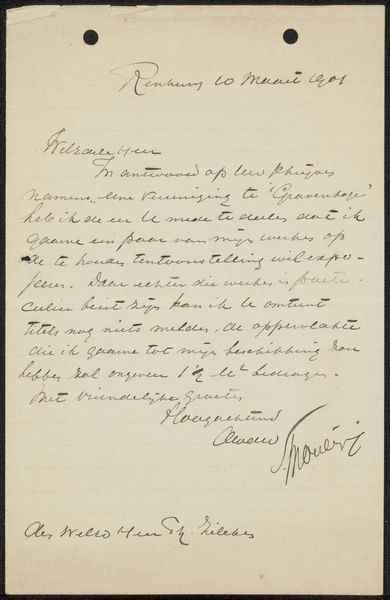 10 Maart 1901
In antwoord op Uw schrijven
namens eene vereeniging te 'Gravenhage
heb ik de eer U mede te deelen dat ik
gaarne een paar van mijn werken op
de te houden tentoonstelling wil expo-
seren. Daar echter die werken in parti-
culier bezit zijn kan ik U omtrent
titels nog niets melden, de oppervlakte
die ik gaarne tot mijn beschikking zou
hebben zal ongeveer 1½ M² bedragen.
Met vriendelijke groeten
Hoogachtend
den Heer